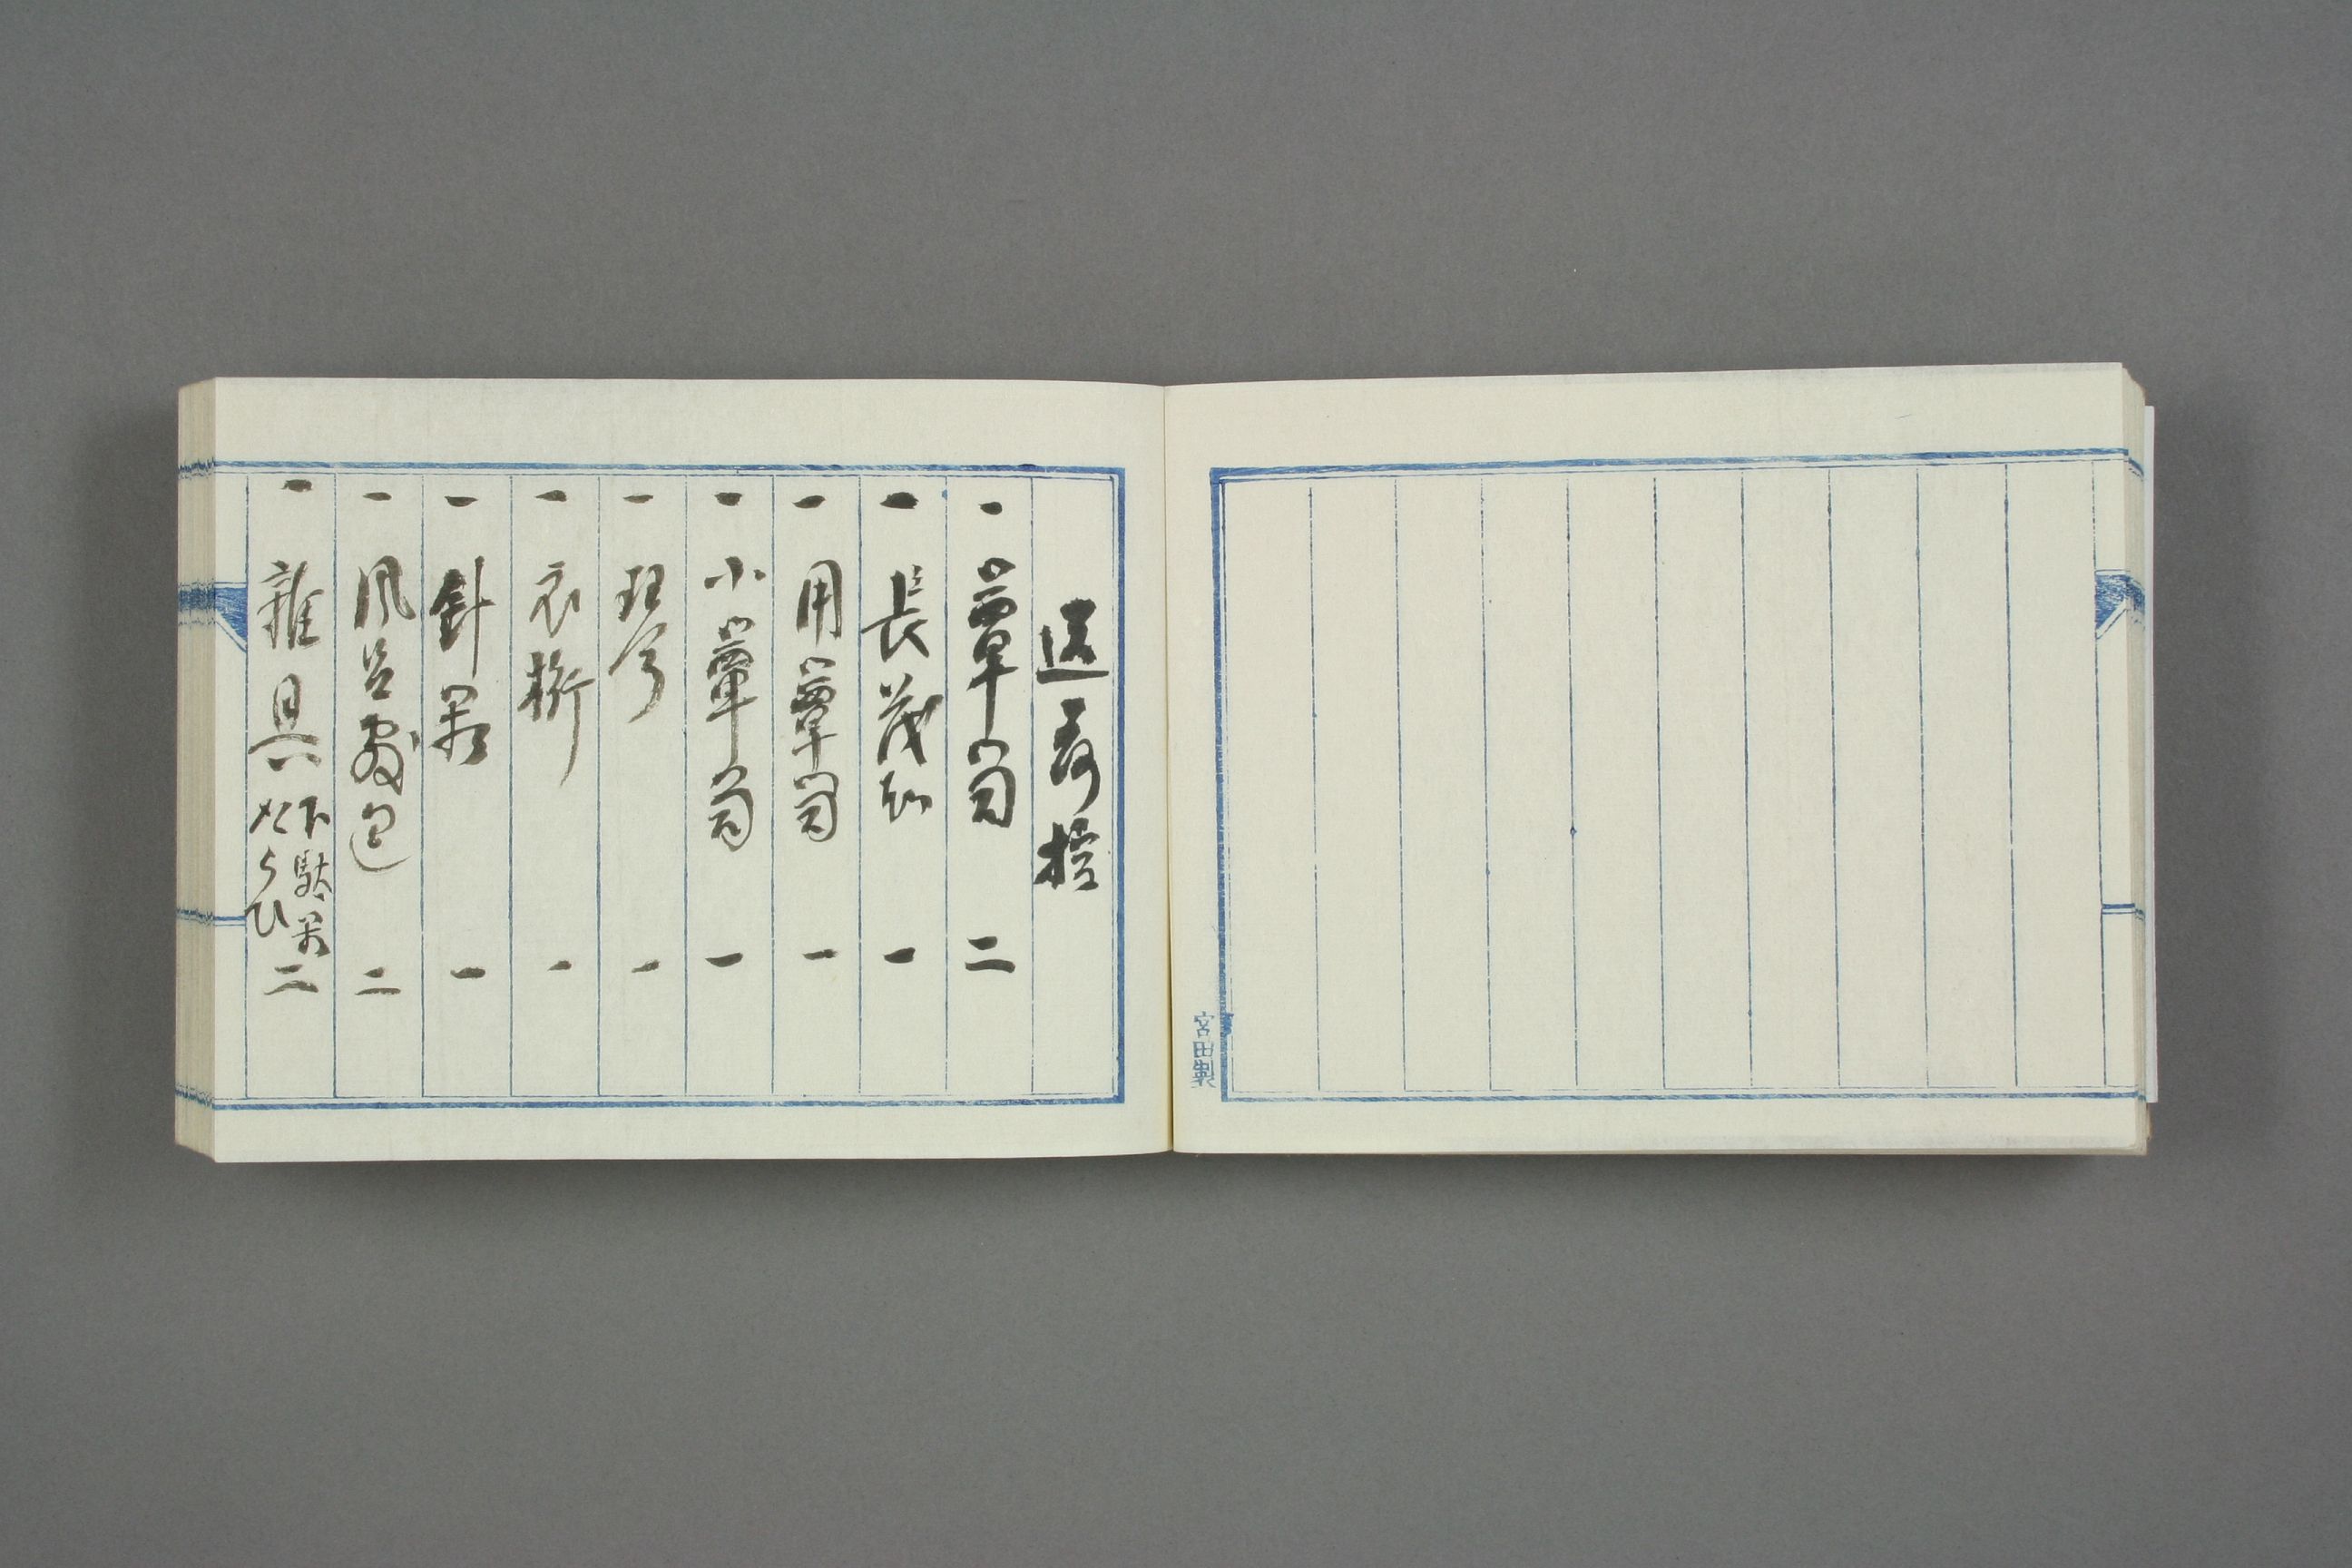 宮田製
送荷控
一 簞笥 二
一 長茂知 一
一 用簞笥 一
一 小簞笥 一
一 琴 一
一 衣桁 一
一 針箱 一
一 風呂敷包 二
一 雑具 下駄箱 たらひ 二